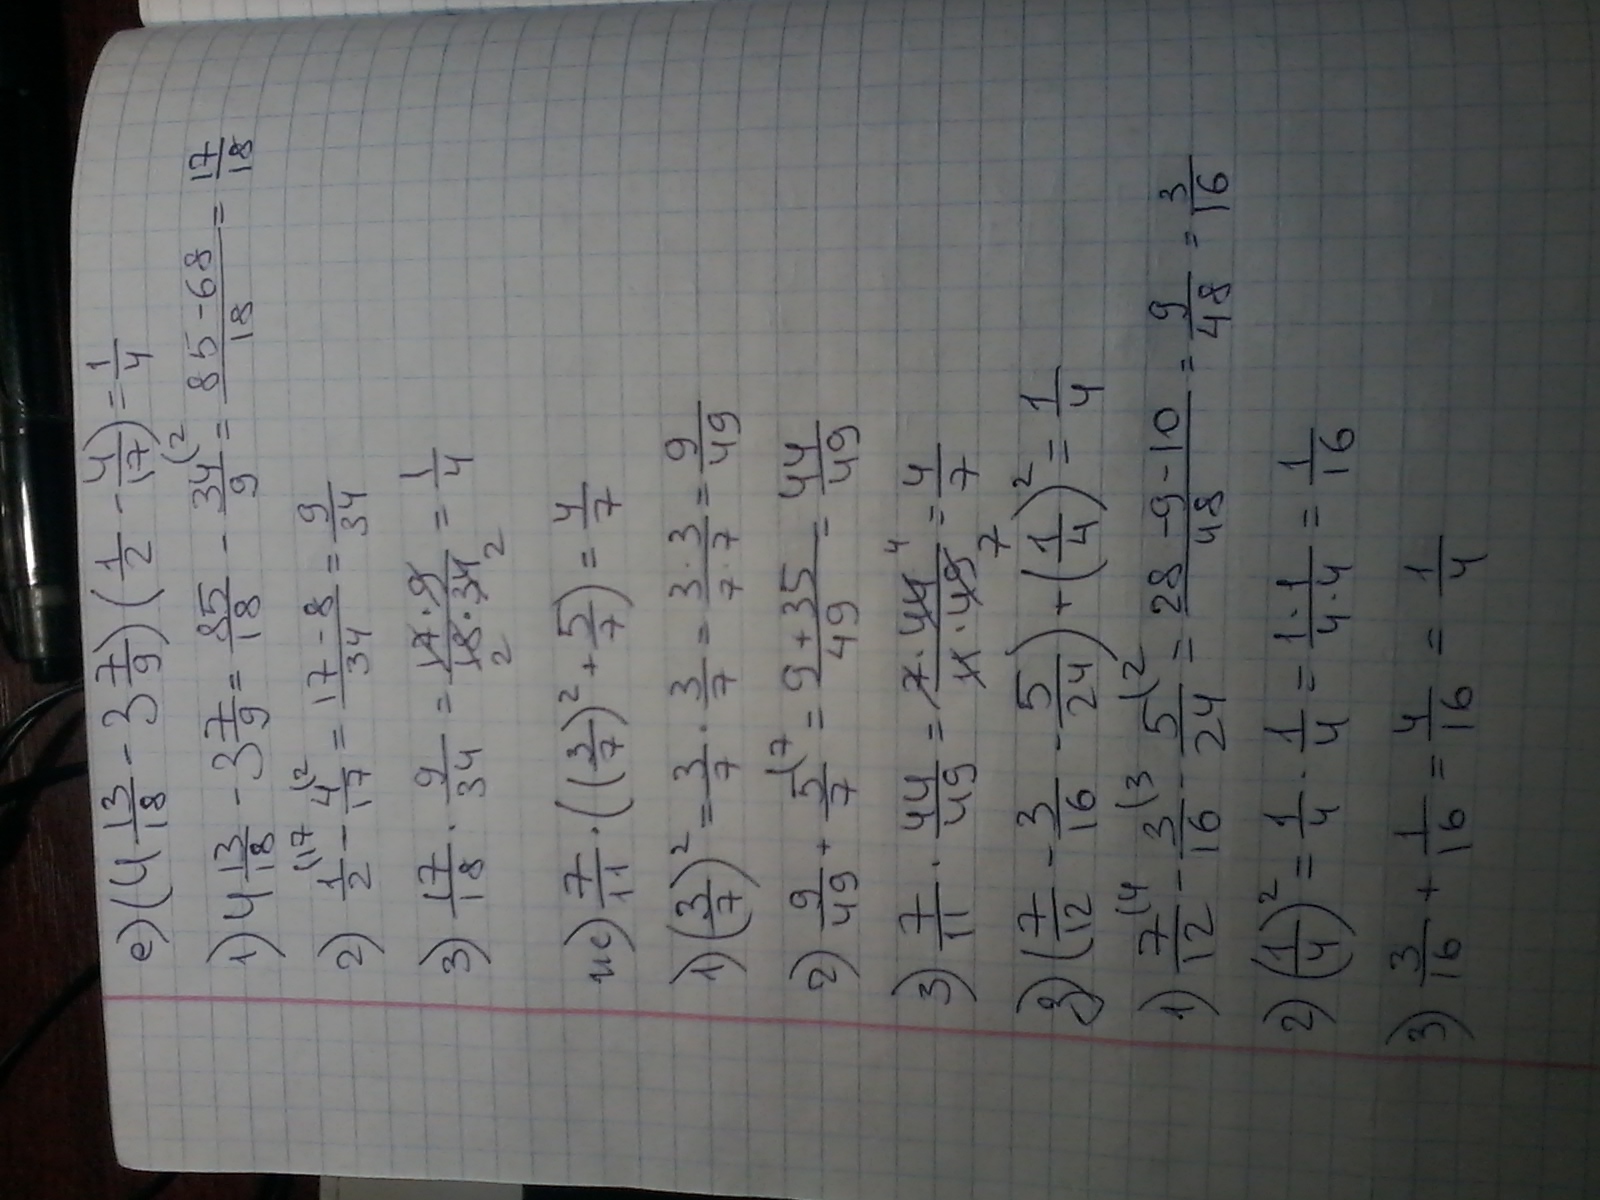 е) (4 13/18 - 3 7/9) (1/2 - 4/17) = 1/4
1) 4 13/18 - 3 7/9 = 85/18 - 34/9 (2 = (85-68)/18 = 17/18
2) 1/2 (17 - 4/17 (2 = (17-8)/34 = 9/34
3) 17/18 · 9/34 = (17·9)/(18·34) 2 2 = 1/4
ж) 7/11 · ((3/7)² + 5/7) = 4/7
1) (3/7)² = 3/7 · 3/7 = (3·3)/(7·7) = 9/49
2) 9/49 + 5/7 (7 = (9+35)/49 = 44/49
3) 7/11 · 44/49 = (7·44)/(11·49) 4 7 = 4/7
з) (7/12 - 3/16 - 5/24) + (1/4)² = 1/4
1) 7/12 (4 - 3/16 (3 - 5/24 (2 = (28-9-10)/48 = 9/48 = 3/16
2) (1/4)² = 1/4 · 1/4 = (1·1)/(4·4) = 1/16
3) 3/16 + 1/16 = 4/16 = 1/4